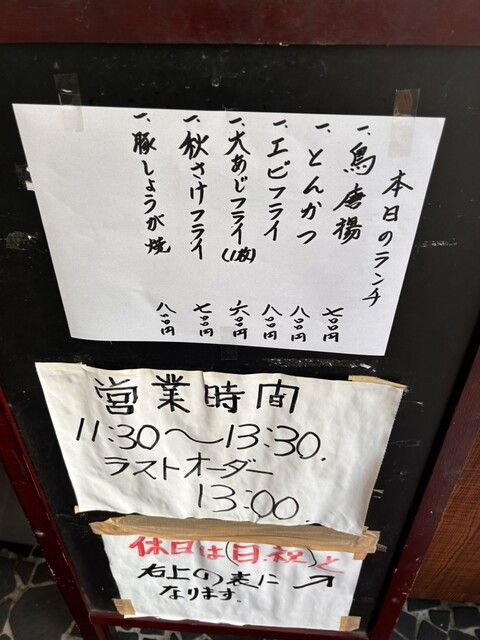 本日のランチ
一、鳥唐揚 七〇〇円
一、とんかつ 八〇〇円
一、エビフライ 八〇〇円
一、大あじフライ(1枚) 六〇〇円
一、秋さけフライ 七〇〇円
一、豚しょうが焼 八〇〇円
営業時間
11:30～13:30.
ラストオーダー
13:00.
休日は(日.祝)と
右上の表に↗
なります.